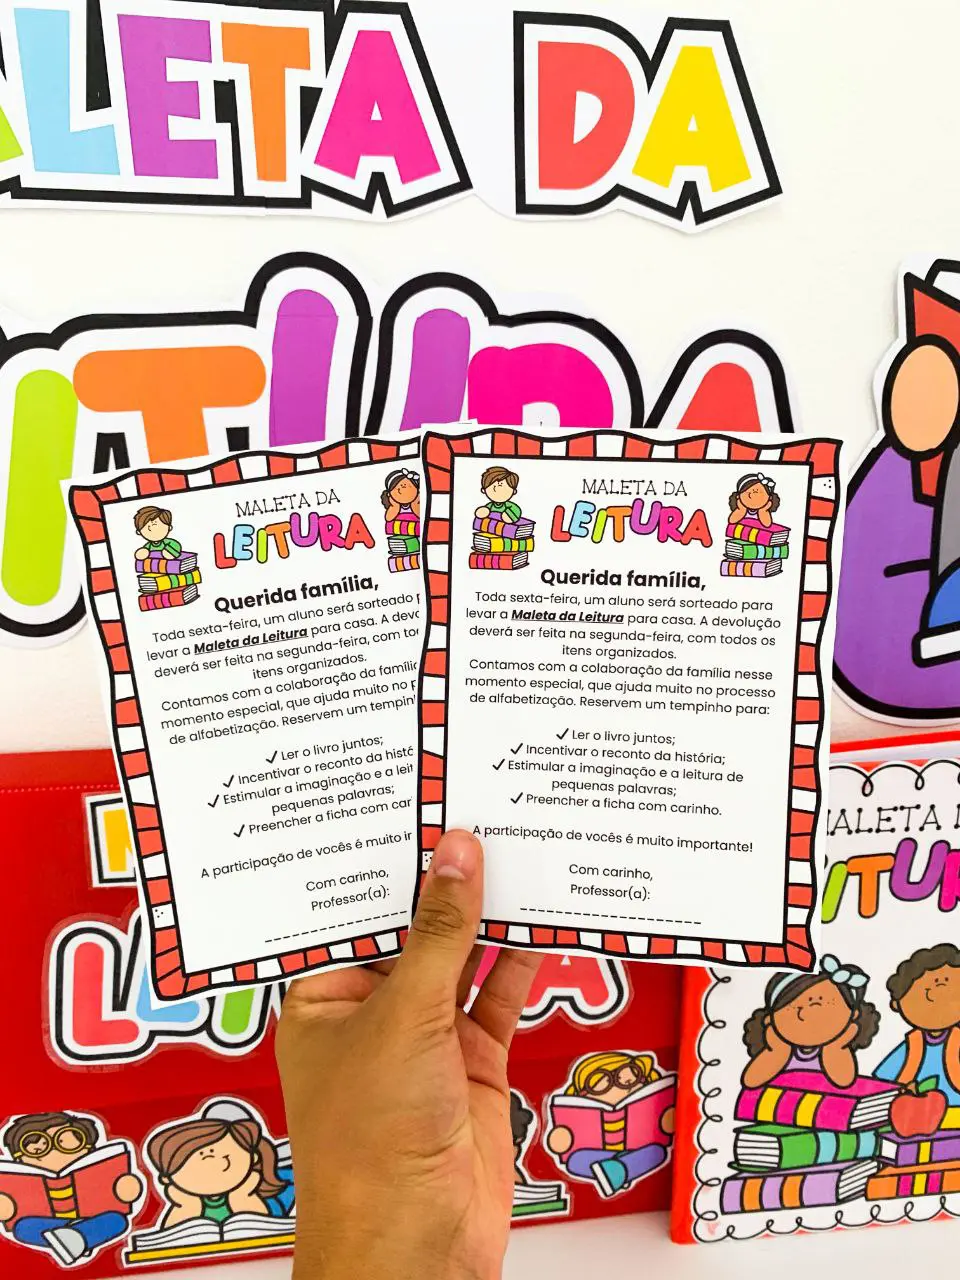 ALETA DA
LEITURA
MALETA DA
LEITURA
Querida família,
Toda sexta-feira, um aluno será sorteado
levar a Maleta da Leitura para casa. A
deverá ser feita na segunda-feira, com
itens organizados.
Contamos com a colaboração da
momento especial, que ajuda muito no
de alfabetização. Reservem um
✓ Ler o livro juntos;
✓ Incentivar o reconto da
✓ Estimular a imaginação e a
pequenas palavras;
✓ Preencher a ficha com
A participação de vocês é muito
Com carinho,
Professor(a):
MALETA DA
LEITURA
Querida família,
Toda sexta-feira, um aluno será sorteado para
levar a Maleta da Leitura para casa. A devolução
deverá ser feita na segunda-feira, com todos os
itens organizados.
Contamos com a colaboração da família nesse
momento especial, que ajuda muito no processo
de alfabetização. Reservem um tempinho para:
✓ Ler o livro juntos;
✓ Incentivar o reconto da história;
✓ Estimular a imaginação e a leitura de
pequenas palavras;
✓ Preencher a ficha com carinho.
A participação de vocês é muito importante!
Com carinho,
Professor(a):